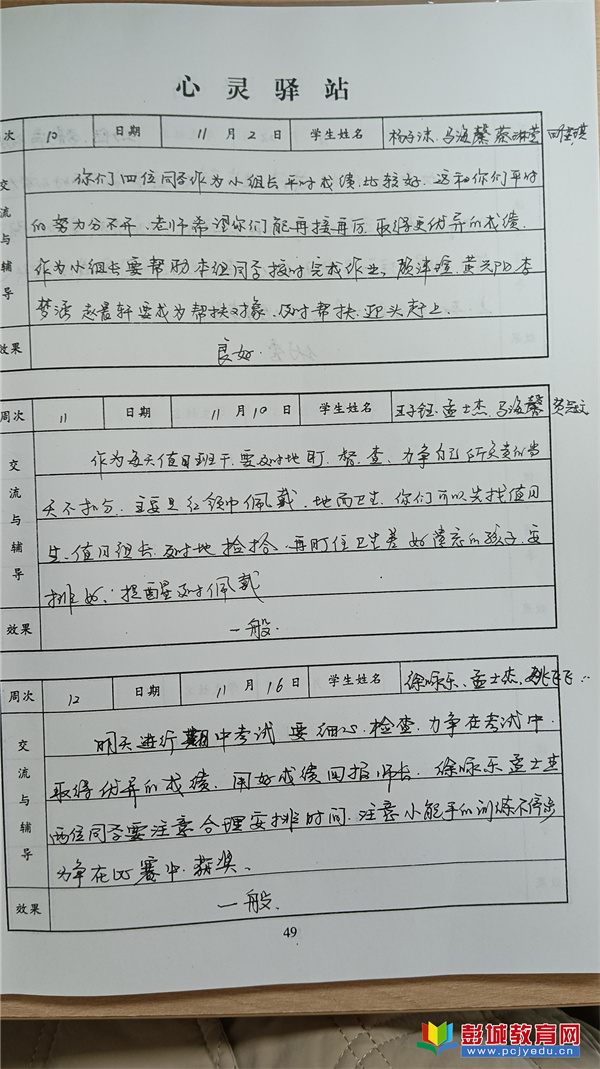 心灵驿站
次 10 日期 11月2日 学生姓名 马海馨
你们四位同学作为小组长平时成绩比较好，这和你们平时
的努力分不开，老师希望你们能再接再厉，取得更优异的成绩，
作为小组长要帮助本组同学按时完成作业，李
赵晨轩要成为帮扶对象，及时帮扶，迎头赶上。
交流与辅导
效果 良好.
周次 11 日期 11月10日 学生姓名 王子钰、孟士杰、马海馨
作为每天值日班干，要及时地盯、督、查，力争自己所负责的当
天不扣分，主要是红领巾佩戴，地面卫生，你们可以先找值日
生、值日组长，及时地捡拾，再盯住卫生差 的孩子，要
提醒及时佩戴
交流与辅导
效果 一般.
周次 12 日期 11月16日 学生姓名 徐咏乐、孟士杰、姚
明天进行期中考试，要细心，检查，力争在考试中，
取得优异的成绩，用好成绩回报师长，徐咏乐孟士杰
两位同学要注意合理安排时间，注意小能手的训练不停步
力争在比赛中获奖。
交流与辅导
效果 一般.
49
彭城教育网
www.pcjyedu.cn